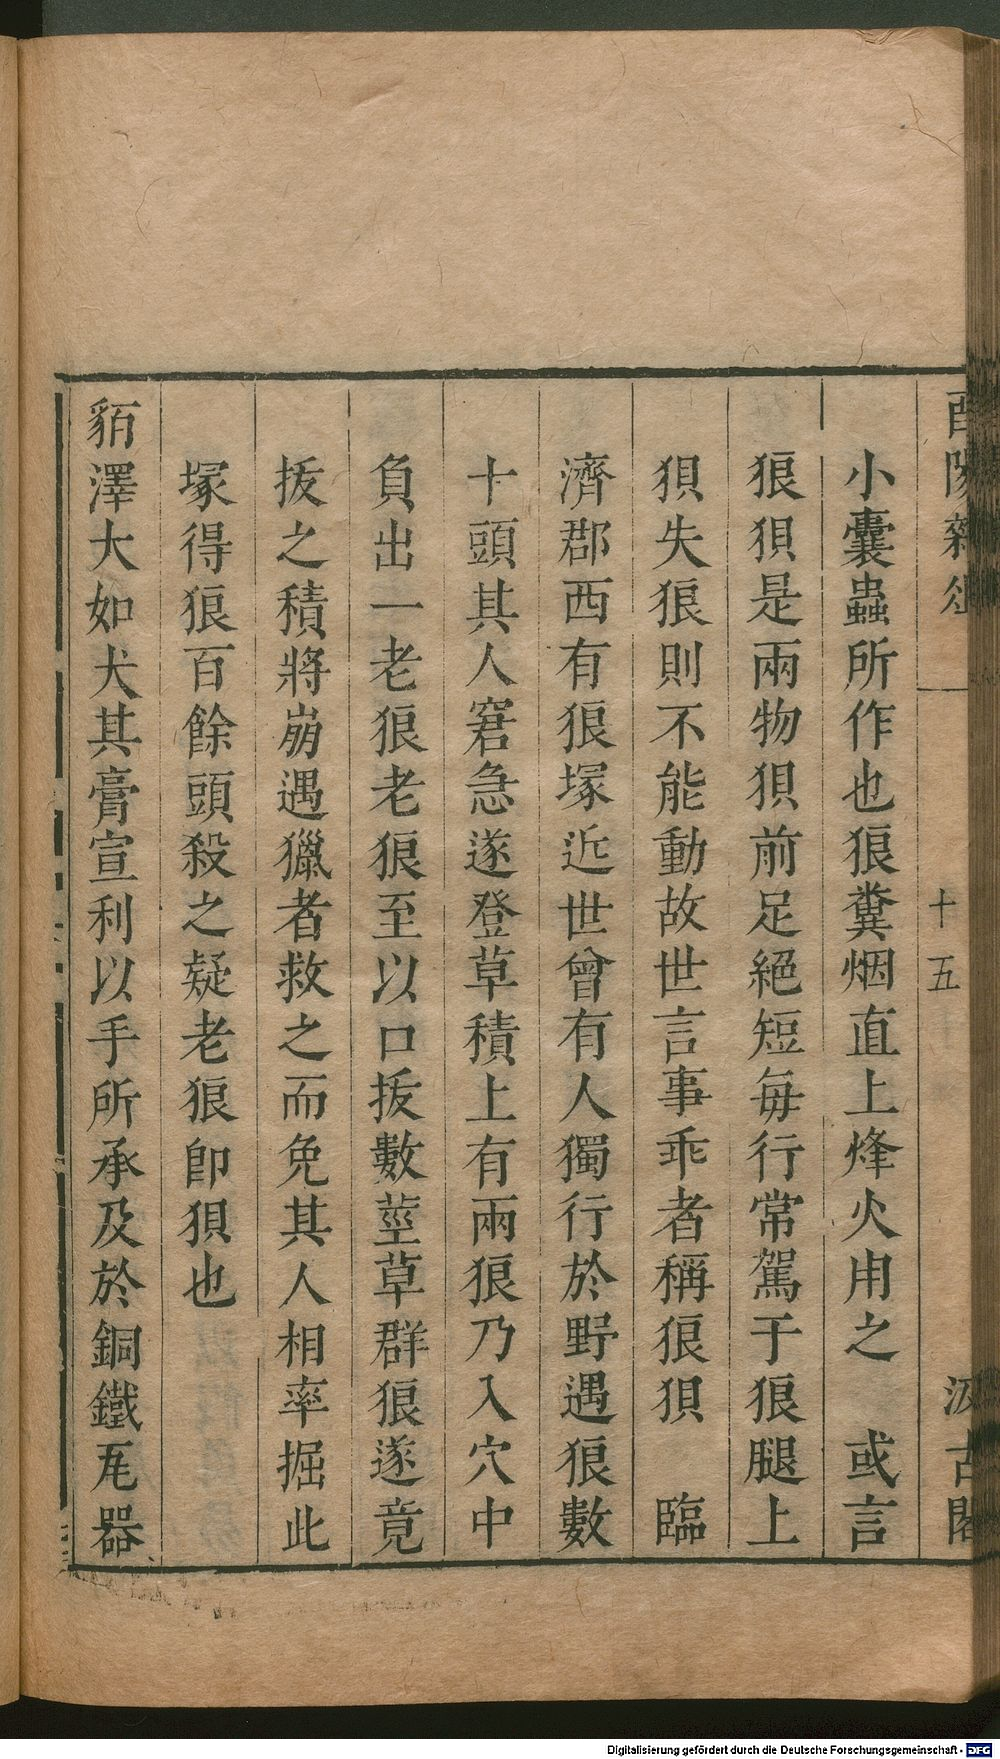 酉陽雜俎
十五
汲古閣
小囊蟲所作也狼糞烟直上烽火用之　或言
狼狽是兩物狽前足絕短每行常駕于狼腿上
狽失狼則不能動故世言事乖者稱狼狽　臨
濟郡西有狼塚近世曾有人獨行於野遇狼數
十頭其人窘急遂登草積上有兩狼乃入穴中
負出一老狼老狼至以口拔數莖草群狼遂竟
拔之積將崩遇獵者救之而免其人相率掘此
塚得狼百餘頭殺之疑老狼卽狽也
貊澤大如犬其膏宣利以手所承及於銅鐵瓦器
Digitalisierung gefördert durch die Deutsche Forschungsgemeinschaft - DFG